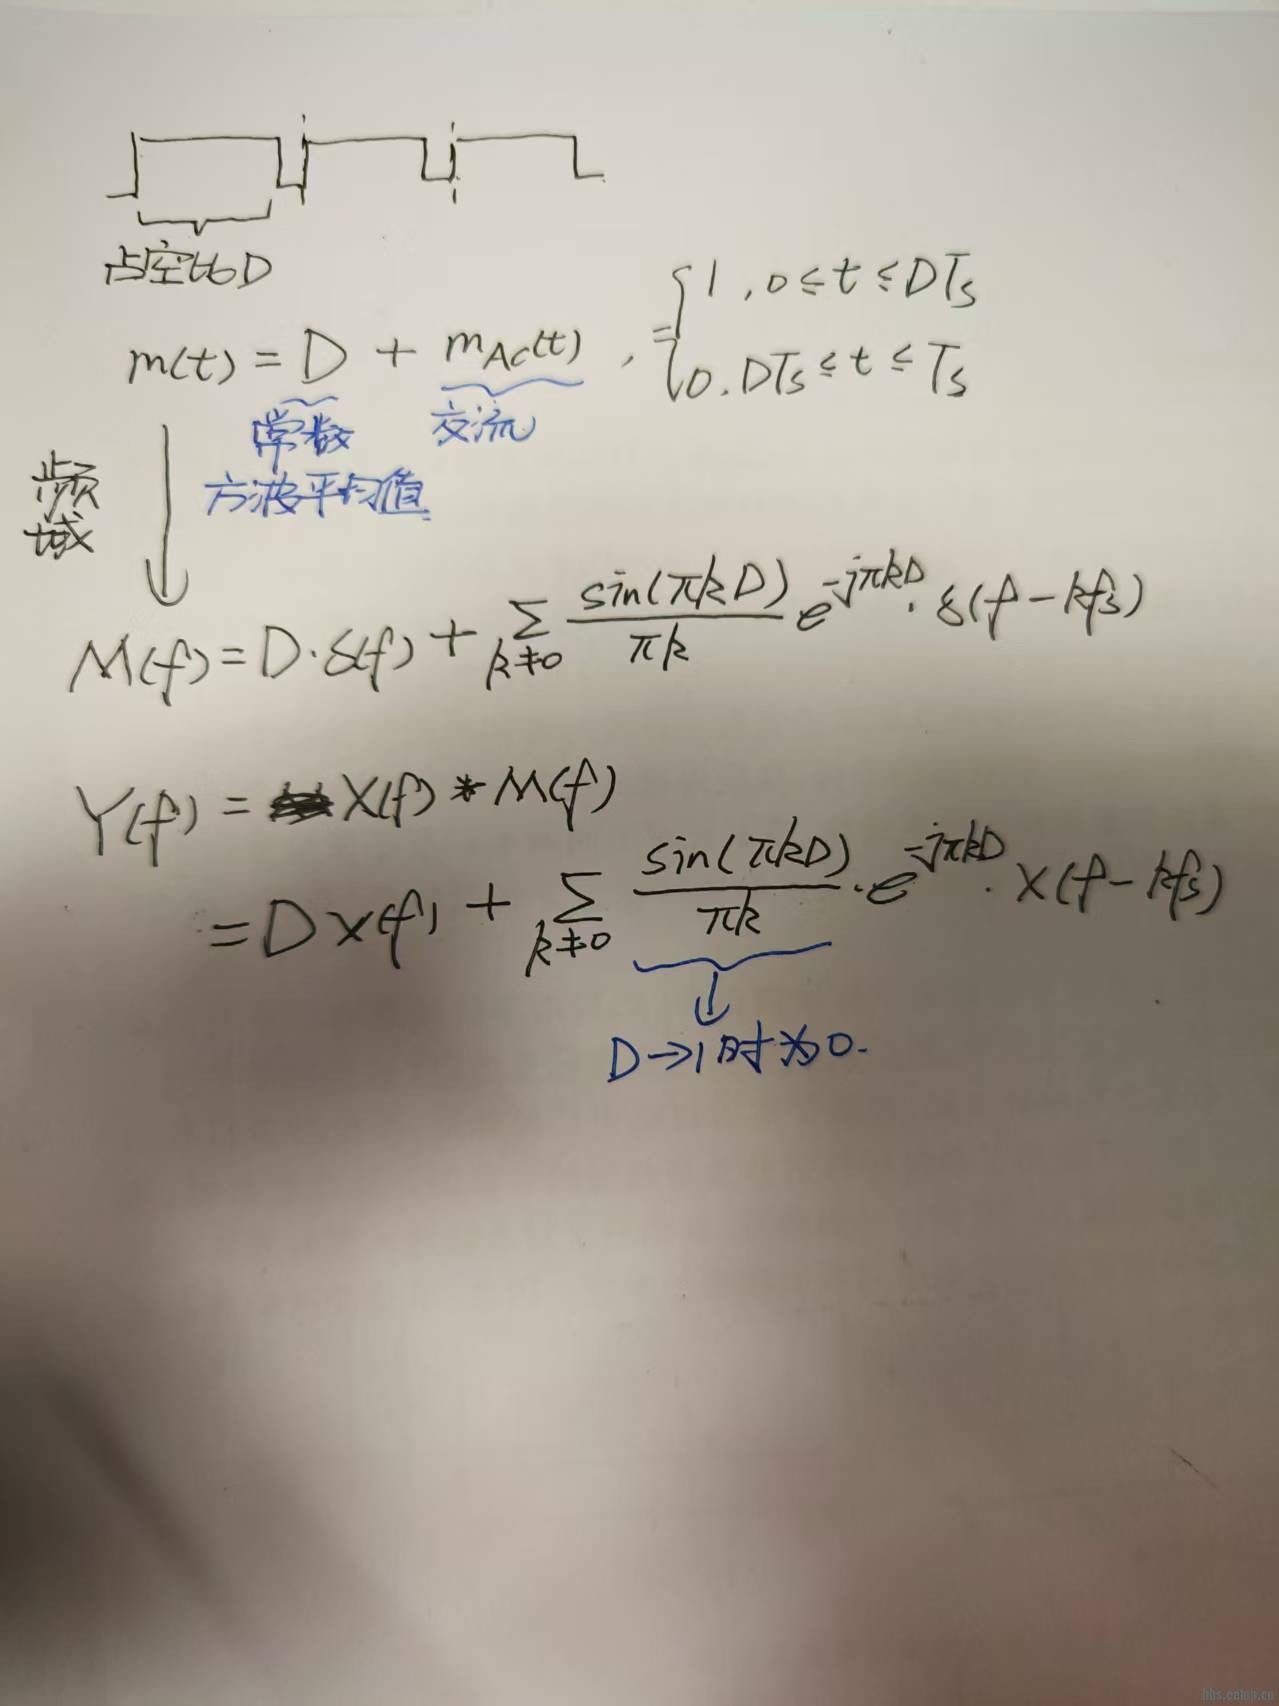 占空比D
m(t) = D + m_AC(t) , = { 1 , 0 ≤ t ≤ DTs
0 . DTs ≤ t ≤ Ts
常数 交流
方波平均值
频域
M(f) = D·δ(f) + Σ_{k≠0} sin(πkD)/πk e^{-jπkD} · δ(f - kfs)
Y(f) = X(f) * M(f)
= D X(f) + Σ_{k≠0} sin(πkD)/πk · e^{-jπkD} · X(f - kfs)
D→1时为0.
bbs.eetop.cn